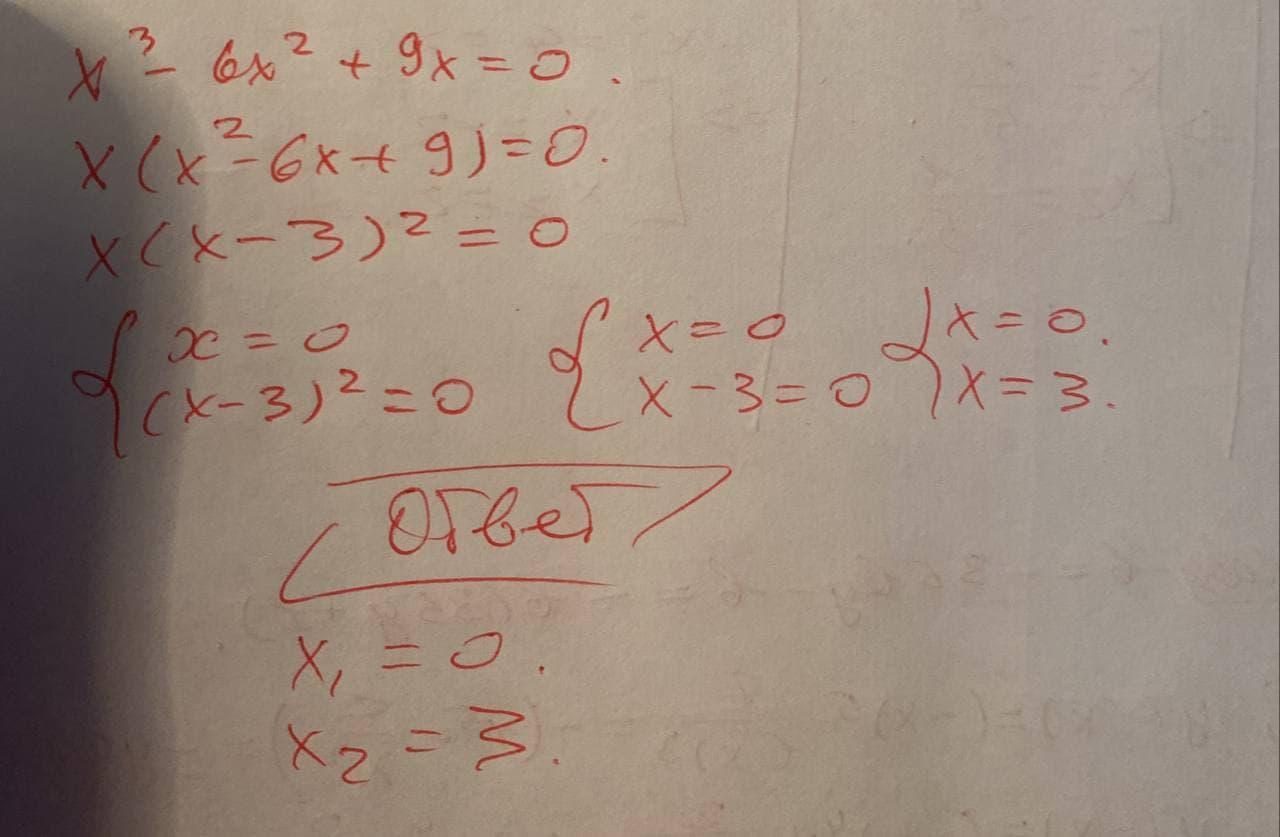 x³ - 6x² + 9x = 0.
x(x² - 6x + 9) = 0.
x(x - 3)² = 0
{ x = 0 { x = 0 { x = 0.
(x - 3)² = 0 x - 3 = 0 x = 3.
Ответ
x₁ = 0.
x₂ = 3.